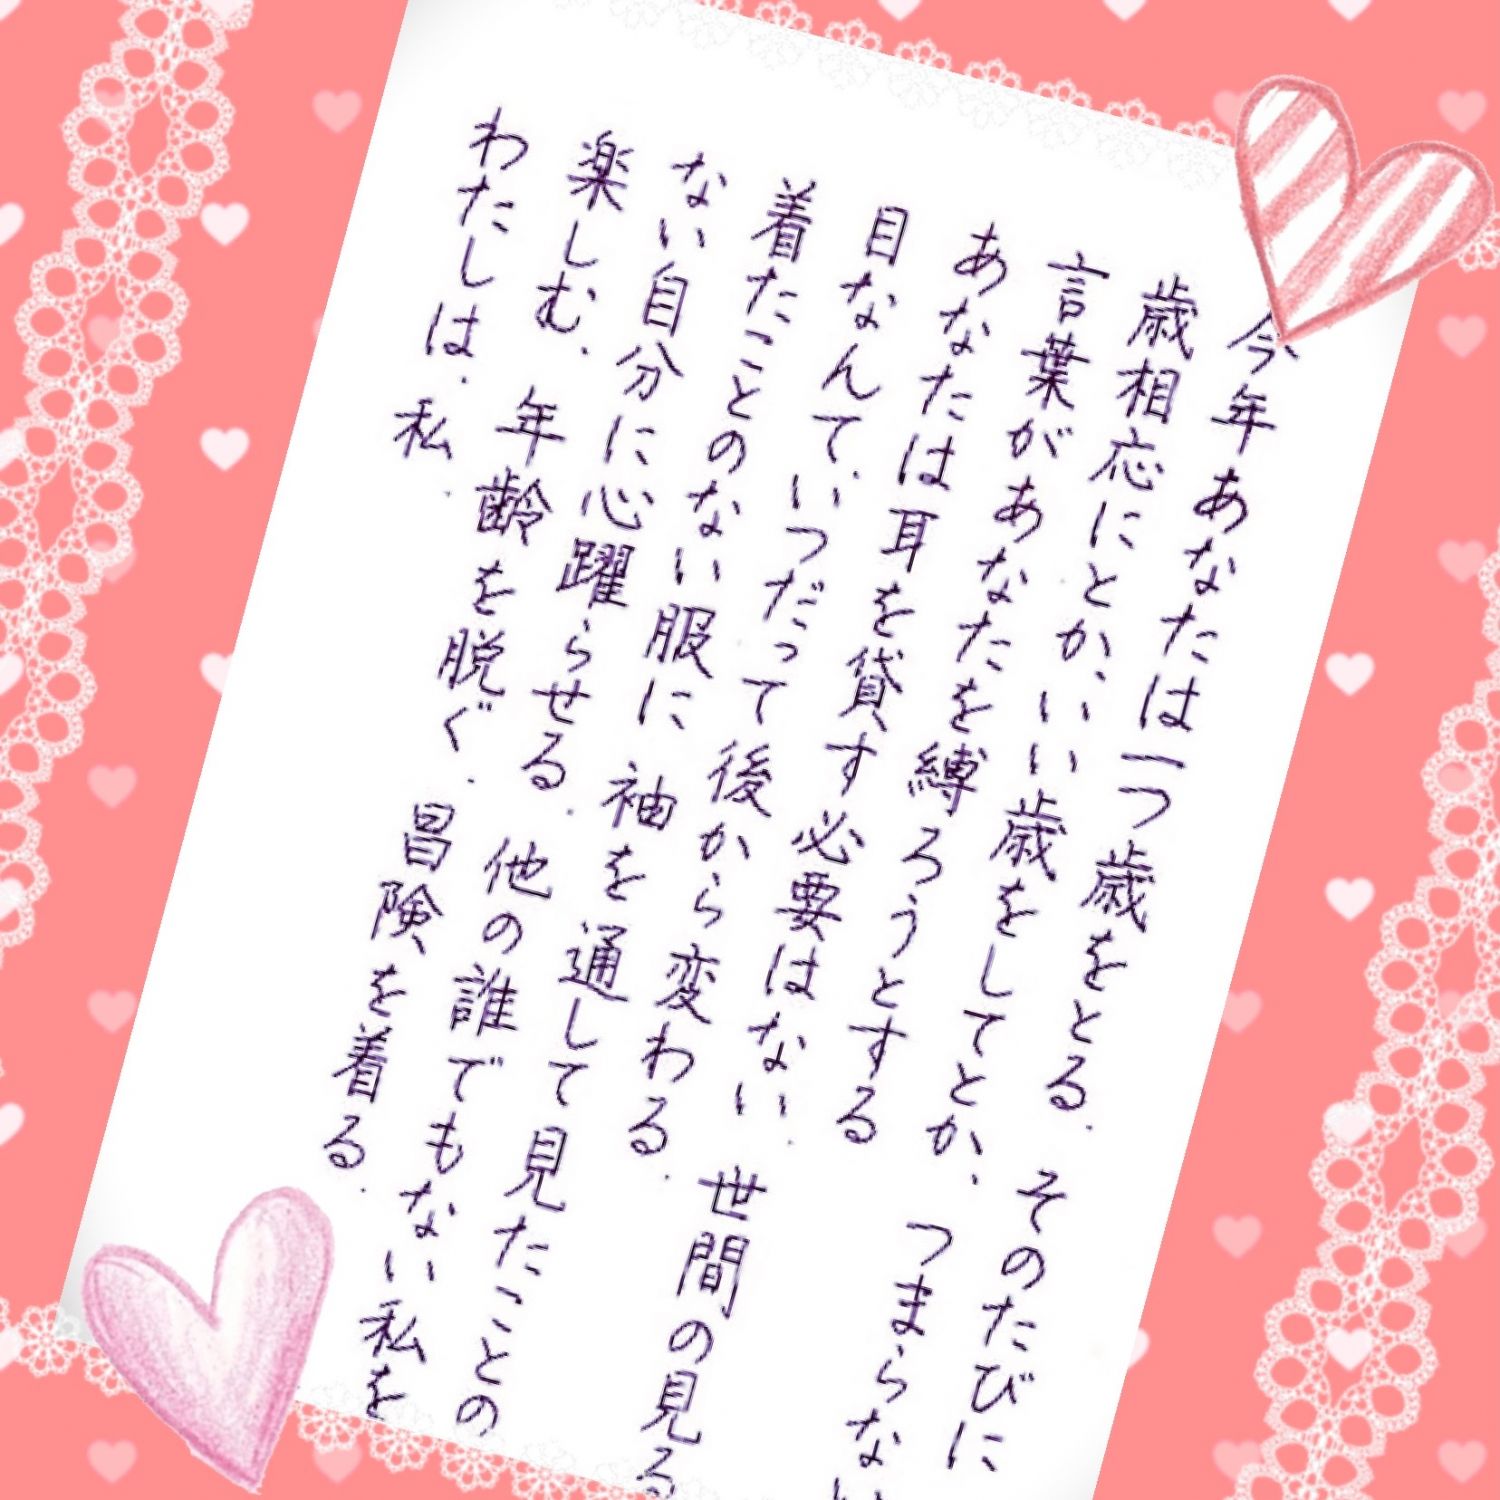 今年あなたは一つ歳をとる。そのたびに
歳相応にとか、いい歳をしてとか、つまらない
言葉があなたを縛ろうとする
あなたは耳を貸す必要はない。世間の見る
目なんて、いつだって後から変わる。
着たことのない服に袖を通して見たことの
ない自分に心躍らせる。他の誰でもない私を
楽しむ。年齢を脱ぐ。冒険を着る。
わたしは、私。